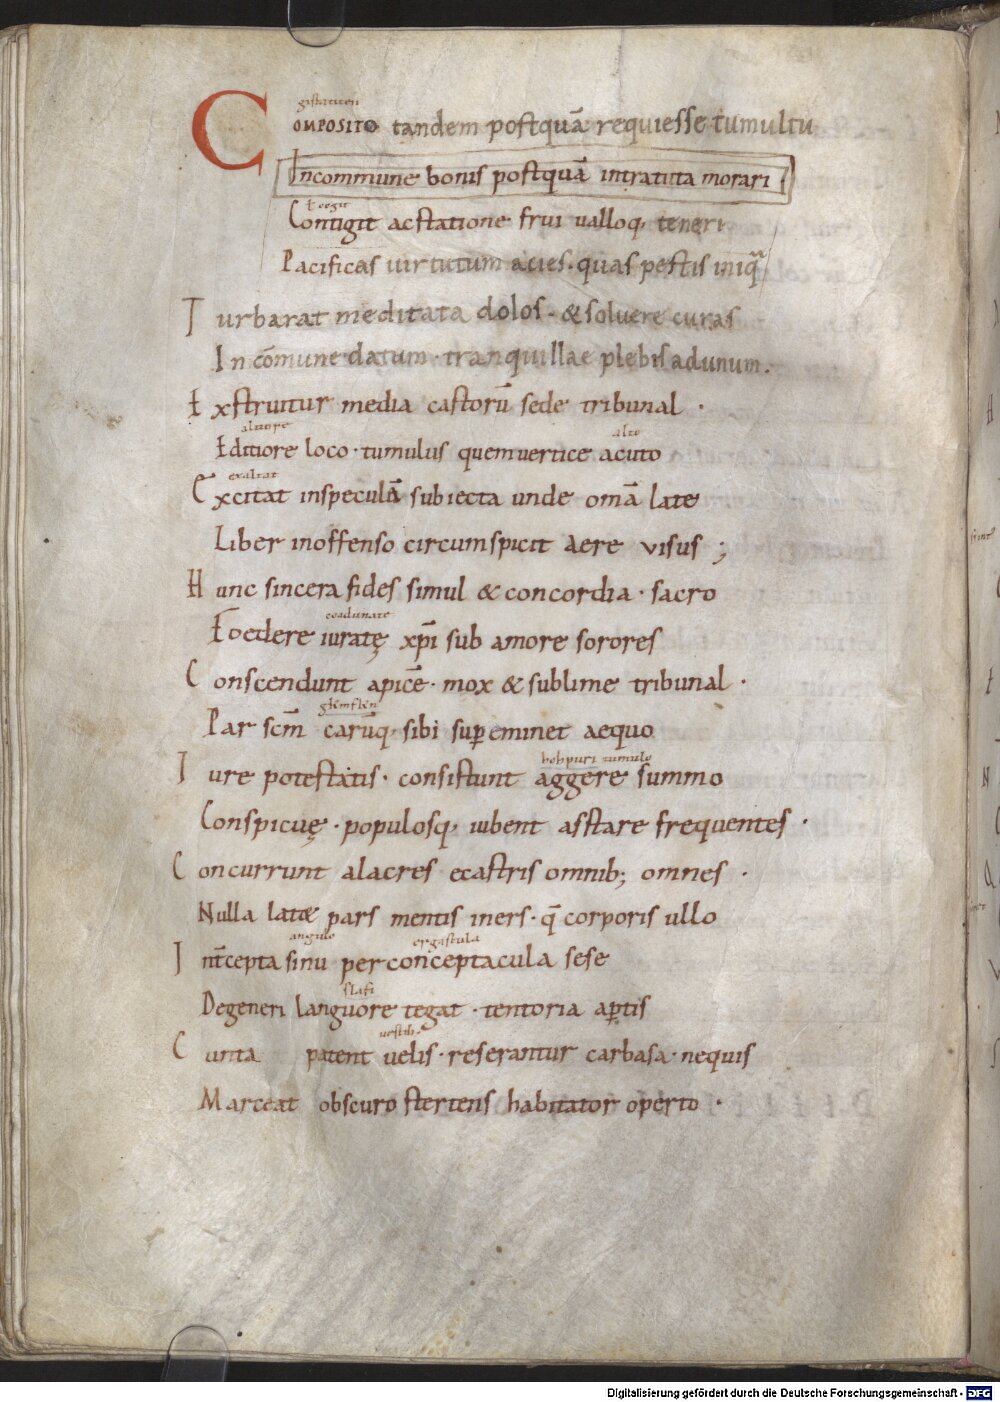 gistatiten
COMPOSITO tandem postquā requiesse tumultu
Incommune bonis postquā intratuta morari
ł coegit
Contigit acstatione frui ualloq; teneri
Pacificas uirtutum acies. quas pestis iniqͣ
Turbarat meditata dolos. & soluere curas
In cōmune datum. tranquillae plebis adunum.
Exstruitur media castorū sede tribunal.
altiore alto
Editiore loco. tumulus quemuertice acuto
exaltat
Excitat inspeculā subiecta unde omā late
Liber inoffenso circumspicit aere visus;
Hunc sincera fides simul & concordia. sacro
coadunate
Foedere iuratę xp̄i sub amore sorores
Conscendunt apicē. mox & sublime tribunal.
Par scm̄ carūq; sibi sup̲eminet aequo
hohpuri tumulo
Iure potestatis. consistunt aggere summo
Conspicuę. populosq; iubent asstare frequentes.
Concurrunt alacres ecastris omnib; omnes.
Nulla latæ pars mentis iners. q̄ corporis ullo
angulo ergastula
Int̄cepta sinu per conceptacula sese
slafi
Degeneri languore tegat. tentoria ap̲tis
uestib.
Cunta patent uelis. reserantur carbasa. nequis
Marceat obscuro stertens habitator operto.
Digitalisierung gefördert durch die Deutsche Forschungsgemeinschaft - DFG